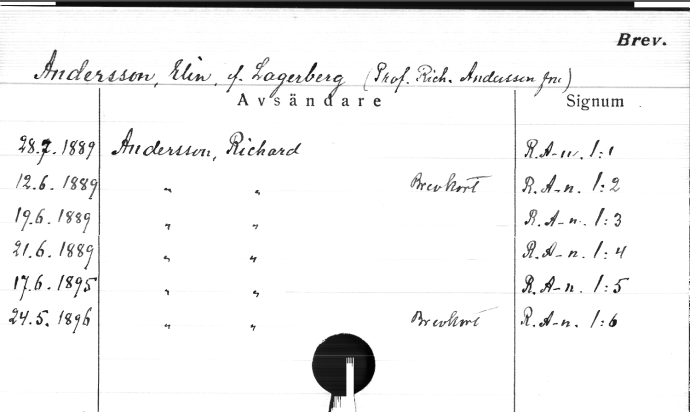 Brev.
Andersson, Elin, f. Lagerberg (Prof. Rich. Andersson fru)
Avsändare Signum
28.7.1889 Andersson, Richard R. A-n. 1:1
12.6.1889 " " Brevkort R. A-n. 1:2
19.6.1889 " " R. A-n. 1:3
21.6.1889 " " R. A-n. 1:4
17.6.1895 " " R. A-n. 1:5
24.5.1896 " " Brevkort R. A-n. 1:6